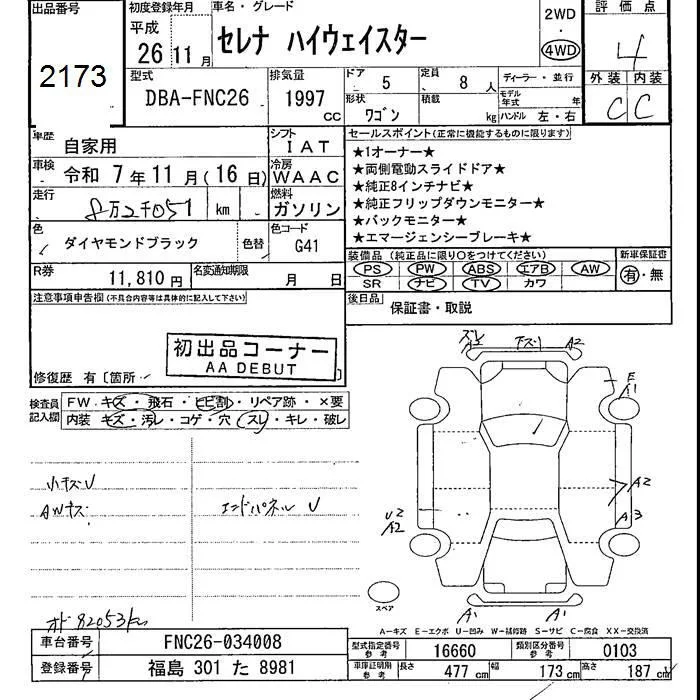 出品番号 初度登録年月 車名・グレード 2WD 評価点
2173 平成 26年 11月 セレナ ハイウェイスター ・ 4WD 4
外装 内装
C C
型式 排気量 ドア 5 定員 8人 ディーラー・並行
DBA-FNC26 1997cc 形状 ワゴン 積載 kg モデル年式 年
ハンドル 左・右
車歴 自家用 シフト IAT セールスポイント(正常に機能するものに限ります)
車検 令和 7年 11月(16日) 冷房 WAAC
★1オーナー★
★両側電動スライドドア★
走行 8万2千051 km 燃料 ガソリン
★純正8インチナビ★
★純正フリップダウンモニター★
★バックモニター★
★エマージェンシーブレーキ★
色 ダイヤモンドブラック 色替 色コード G41
装備品(純正品に限り○をつけてください) 新車保証書
PS PW ABS エアB AW 有・無
SR ナビ TV カワ
R券 11,810円 名変通知期限 月 日
注意事項申告欄(不具合内容等は具体的に記入して下さい) 後日品 保証書・取説
初出品コーナー
AA DEBUT
修復歴 有〔箇所 〕
検査員記入欄 FW.キズ・飛石・ヒビ割・リペア跡・×要
内装・キズ・汚レ・コゲ・穴・スレ・キレ・破レ
A2 下ズリ A2
E
A1
小キズU
AWキズ エンドパネル U
A2
U2
A2
A3
スペア
A1 A1
オド82053km
A−キズ E−エクボ U−凹み W−補修跡 S−サビ C−腐食 XX−交換済
車台番号 FNC26-034008 型式指定番号 参考 16660 類別区分番号 参考 0103
登録番号 福島 301 た 8981 車庫証明用 参考 長さ 477cm 幅 173cm 高さ 187cm